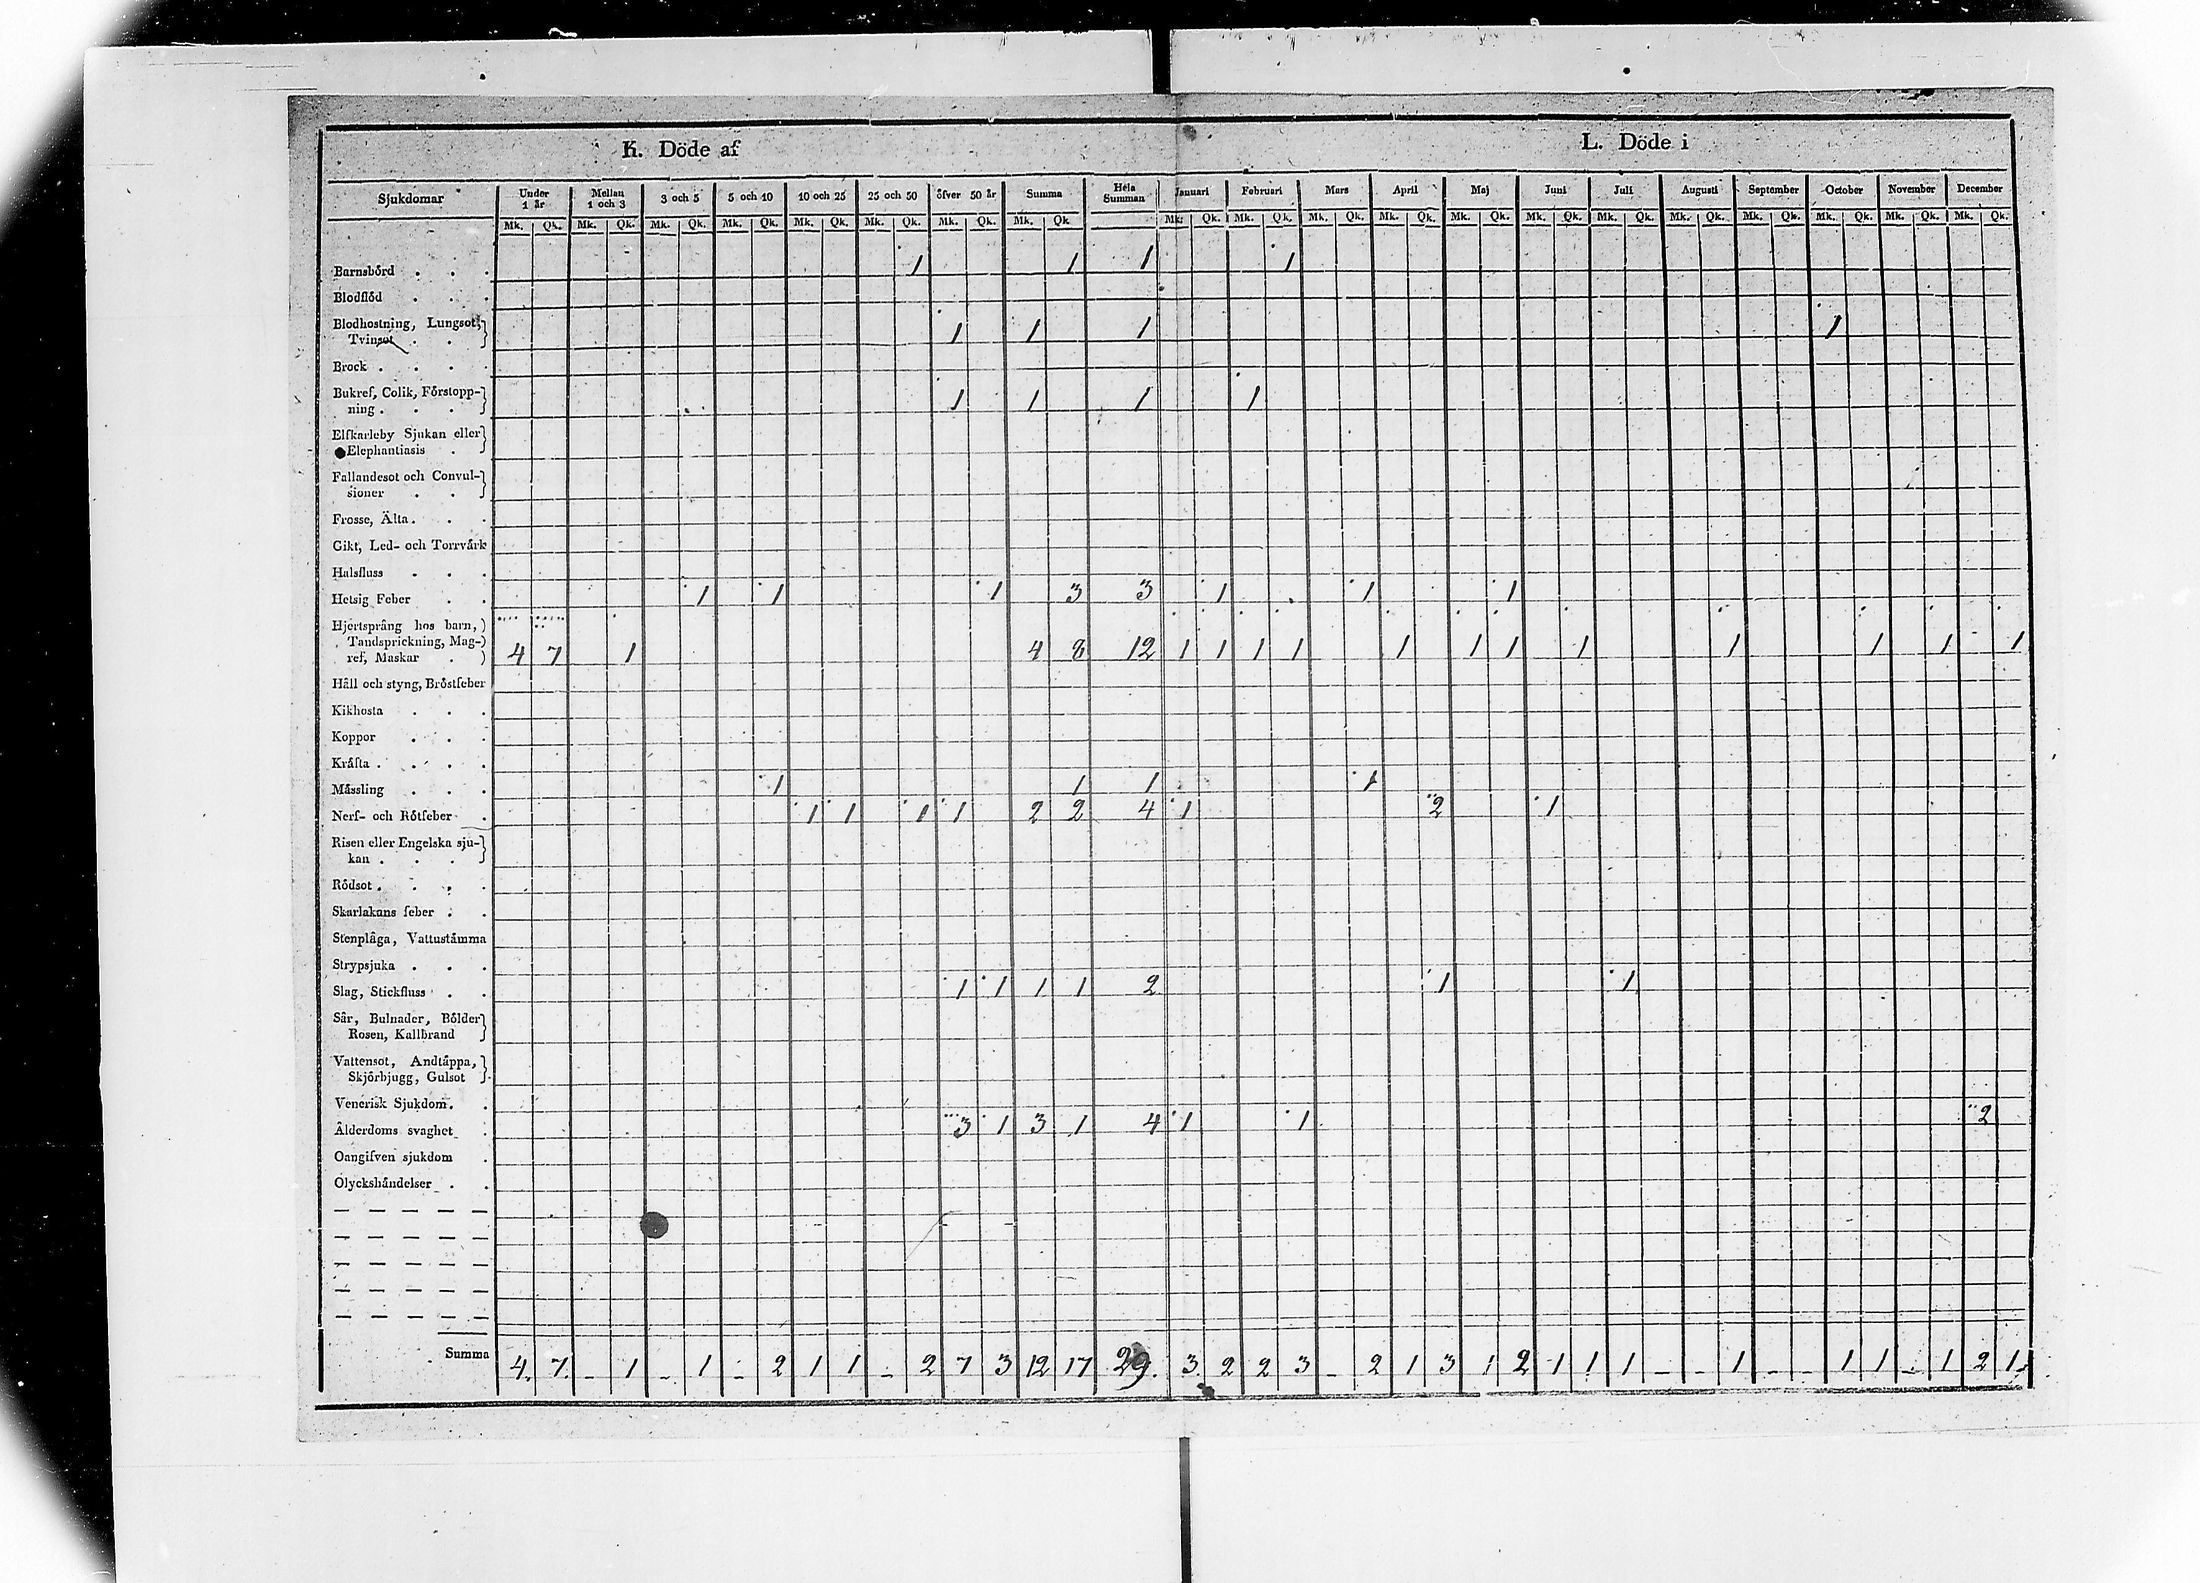 K. Döde af L. Döde i
Sjukdomar Under 1 år Mellan 1 och 3 3 och 5 5 och 10 10 och 25 25 och 50 öfver 50 år Summa Hela Summan Januari Februari Mars April Maj Juni Juli Augusti September October November December
Mk. Qk. Mk. Qk. Mk. Qk. Mk. Qk. Mk. Qk. Mk. Qk. Mk. Qk. Mk. Qk. Mk. Qk. Mk. Qk. Mk. Qk. Mk. Qk. Mk. Qk. Mk. Qk. Mk. Qk. Mk. Qk. Mk. Qk. Mk. Qk. Mk. Qk. Mk. Qk.
Barnsbörd . . . 1 1 1 1
Blodflöd . . .
Blodhostning, Lungsot,
Tvinsot . . 1 1 1 1
Brock . . . .
Bukref, Colik, Förstopp-
ning . . . 1 1 1 1
Elfkarleby Sjukan eller
Elephantiasis .
Fallandesot och Convul-
sioner . .
Frosse, Älta . . .
Gikt, Led- och Torrvärk
Halsfluss . . .
Hetsig Feber . . 1 1 1 3 3 1 1 1
Hjertsprång hos barn,
Tandsprickning, Mag-
ref, Maskar . 4 7 1 4 8 12 1 1 1 1 1 1 1 1 1 1 1 1
Håll och styng, Bröstfeber
Kikhosta . . .
Koppor . . .
Kräfta . . . .
Mässling . . . 1 1 1 1
Nerf- och Rötfeber . 1 1 1 1 2 2 4 1 2 1
Risen eller Engelska sju-
kan . . .
Rödsot . . . .
Skarlakans feber . .
Stenplåga, Vattustämma
Strypsjuka . . .
Slag, Stickfluss . . 1 1 1 1 2 1 1
Sår, Bulnader, Bölder
Rosen, Kallbrand
Vattensot, Andtäppa,
Skjörbjugg, Gulsot
Venerisk Sjukdom . .
Ålderdoms svaghet . 3 1 3 1 4 1 1 2
Oangifven sjukdom .
Olyckshändelser . .
Summa 4. 7. - 1 - 1 - 2 1 1 - 2 7 3 12 17 29. 3. 2 2 3 - 2 1 3 1 2 1 1 1 - - 1 - - 1 1 - 1 2 1.